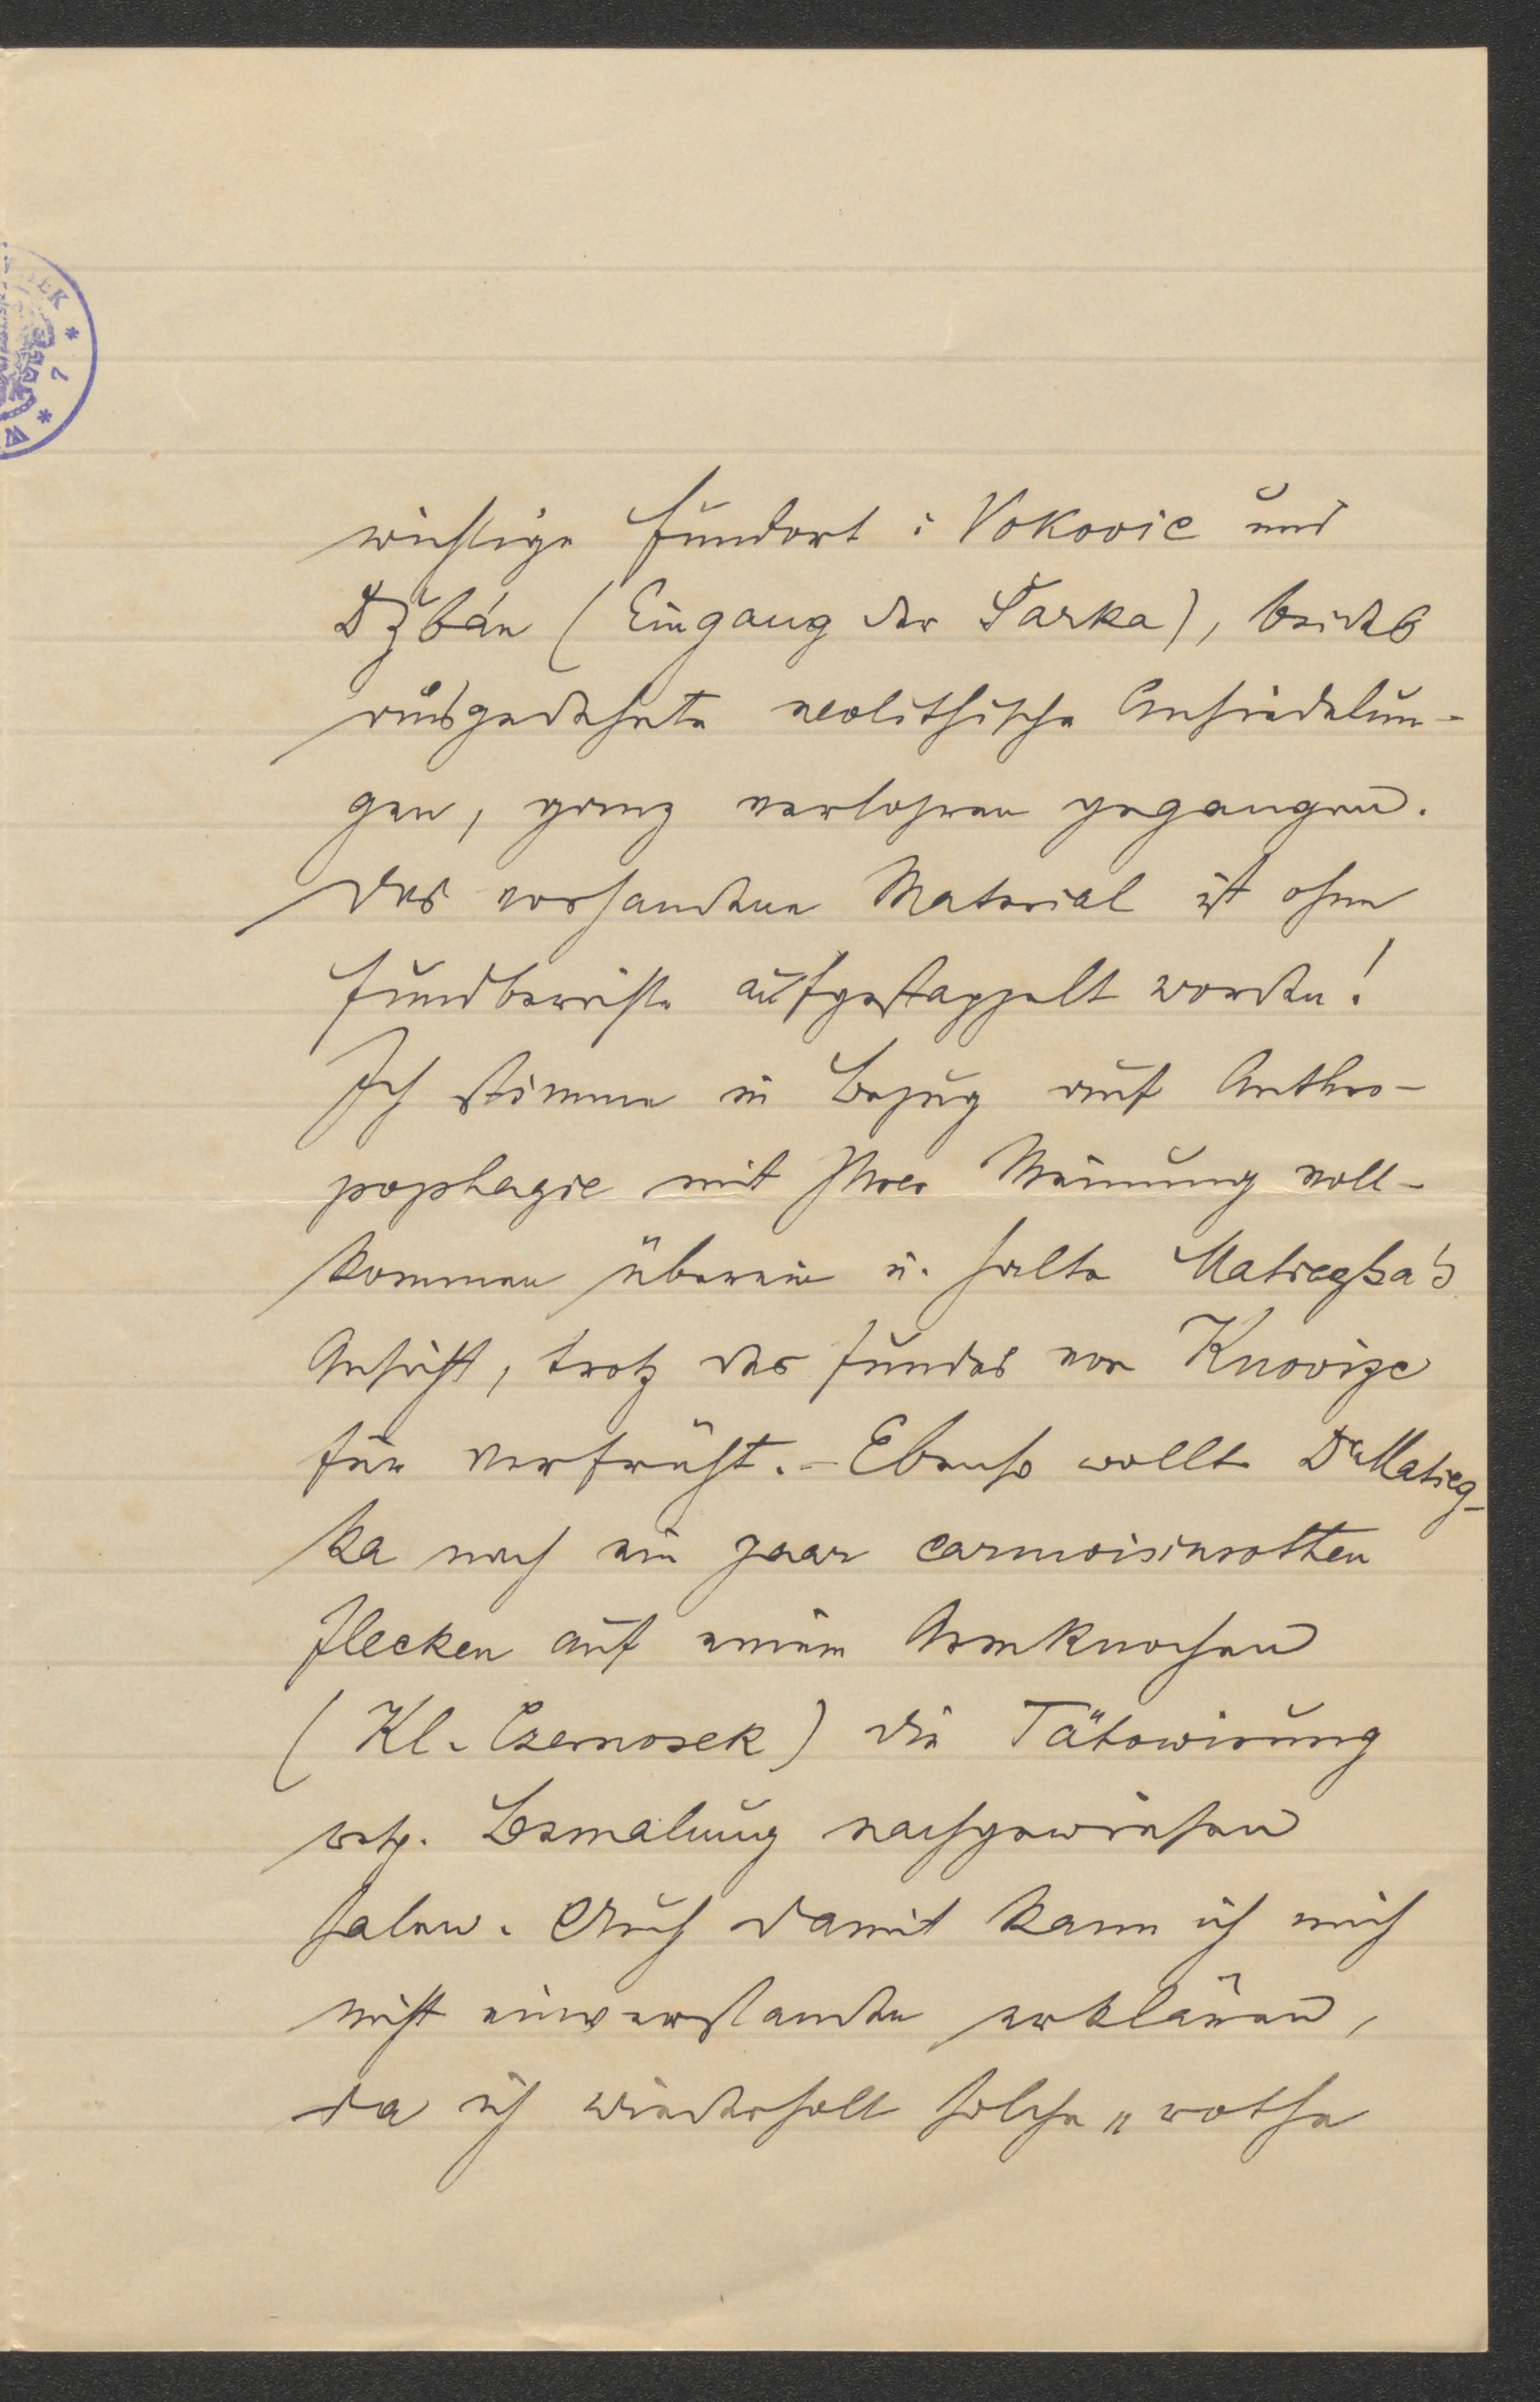 wichtige Fundort: Vokovic und
Džbán (Eingang der Šarka), beides
ausgedehnte neolithische Ansiedelun-
gen, ganz verlohren gegangen.
Das vorhandene Material ist ohne
Fundberichte aufgestappelt worden!
Ich stimme in Bezug auf Anthro-
pophagie mit Ihrer Meinung voll-
kommen überein u. halte Matiegka's
Ansicht, trotz des Fundes von Knovize
für verfrüht. - Ebenso wollte Dr Matieg-
ka nach ein paar carmoisinrothen
Flecken auf einem Armknochen
(Kl. Czernosek) die Tätowirung
resp. Bemalung nachgewiesen
haben. Auch damit kann ich mich
nicht einverstanden erklären,
da ich wiederholt solche "rothe
EK * 7 * W